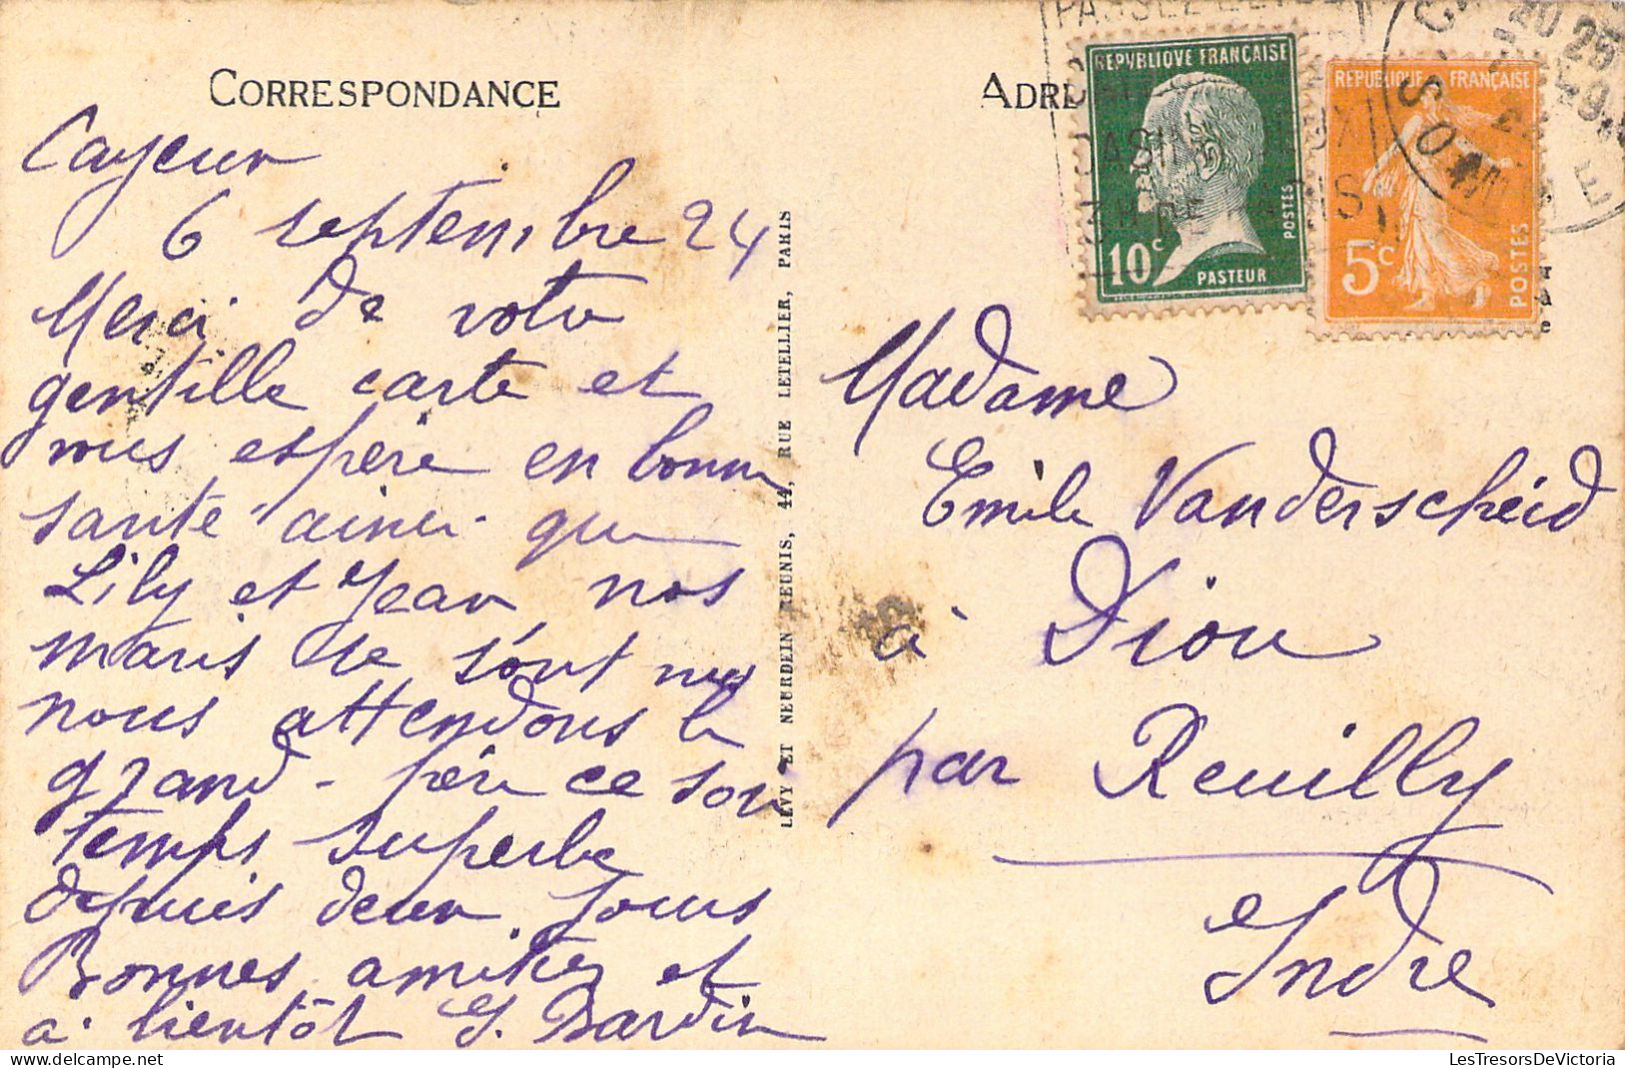 CORRESPONDANCE
Cayeux
6 septembre 24
Merci de votre
gentille carte et
vous espère en bonne
santé ainsi que
Lily et Jean nos
maris se sont nus
nous attendons le
grand-père ce soir
temps superbe
depuis deux jours
Bonnes amitiés et
à bientôt G. Bardin
LEVY ET NEURDEIN REUNIS, 44, RUE LETELLIER, PARIS
ADRE
REPVBLIQVE FRANÇAISE
10c
PASTEUR
POSTES
REPUBLIQUE FRANÇAISE
5c
POSTES
SOMME
Madame
Emile Vanderscheid
à Diou
par Reuilly
Indre
LesTresorsDeVictoria